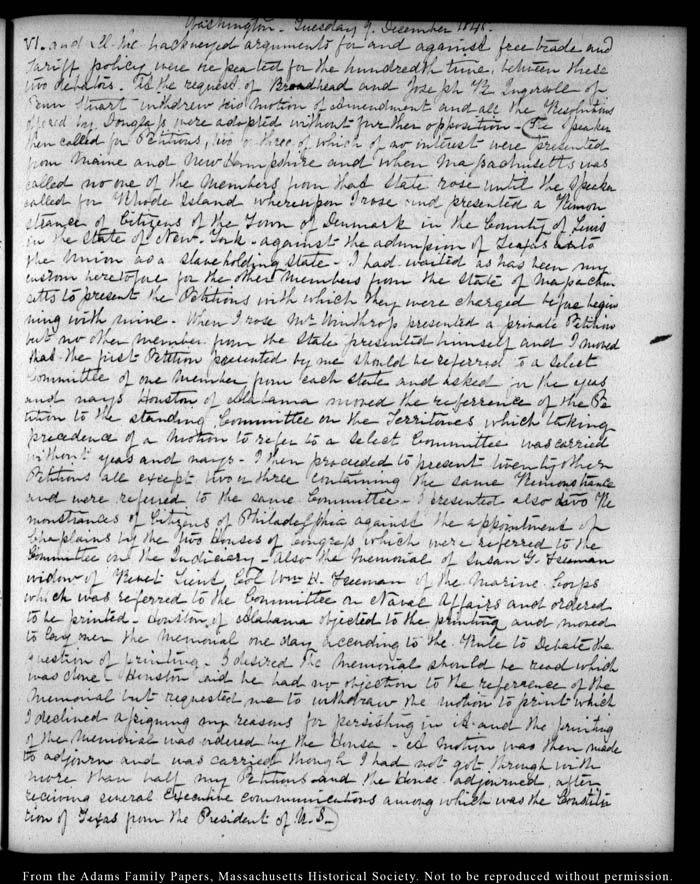 Washington. Tuesday 9. December 1845.
VI. and all the hackneyed arguments for and against free trade and
tariff policy were repeated for the hundredth time, between these
two debators. At the request of Broadhead and Joseph R Ingersoll of
Penn Stuart withdrew his motion of amendment and all the Resolutions
offered by Douglass were adopted without further opposition - (The Speaker
then called for Petitions, two or three of which of no interest were presented
from Maine and New Hampshire and when Massachusetts was
called no one of the Members from that State rose until the Speaker
called for Rhode Island whereupon I rose and presented a Remon
strance of Citizens of the Town of Denmark in the County of Lewis
in the State of New-York - against the admission of Texas into
the Union as a slaveholding state - I had waited as has been my
custom heretofore for the other Members from the State of Massachu
setts to present the Petitions with which they were charged before begin
ning with mine - When I rose Mr Winthrop presented a private Petition
but no other member from the State presented himself and I moved
that the first Petition presented by me should be referred to a select
Committee of one Member from each state and asked for the yeas
and nays Houston of Alabama moved the referrence of the Pe
tition to the standing Committee on the Territories which taking
precedence of a motion to refer to a select Committee was carried
without yeas and nays - I then proceeded to present twenty other
Petitions all except two or three containing the same Remonstrance
and were referred to the same Committee - I presented also two Re
monstrances of Citizens of Philadelphia against the appointment of
Chaplains by the two Houses of Congress which were referred to the
Committee on the Judiciary - Also the Memorial of Susan G. Freeman
widow of Brevet Lieut Col Wm H. Freeman of the Marine Corps
which was referred to the Committee on Naval Affairs and ordered
to be printed - Houston of Alabama objected to the printing and moved
to lay over the Memorial one day according to the Rule to Debate the
question of printing - I desired the Memorial should be read which
was done - Houston said he had no objection to the referrence of the
Memorial but requested me to withdraw the motion to print which
I declined assigning my reasons for persisting in it and the printing
of the Memorial was ordered by the House - A motion was then made
to adjourn and was carried though I had not got through with
more than half my Petitions and the House adjourned after
receiving several Executive communications among which was the Constitu
tion of Texas from the President of U.S-)
From the Adams Family Papers, Massachusetts Historical Society. Not to be reproduced without permission.